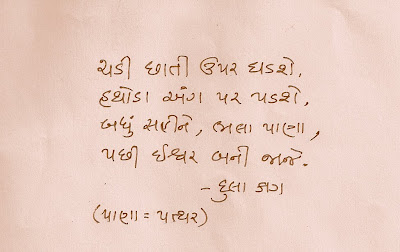 ચડી છાતી ઉપર ઘડશે,
હથોડા અંગ પર પડશે,
બધું સહીને, ભલા પાણા,
પછી ઈશ્વર બની જાજે.
- દુલા કાગ
(પાણા = પત્થર)